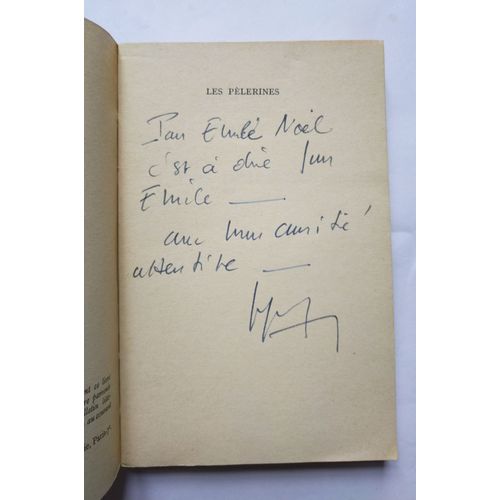 LES PÈLERINES
Pour Emile Noël
c'est à dire pour
Emile —
avec mon amitié
attentive —
ie, Paris-7e.